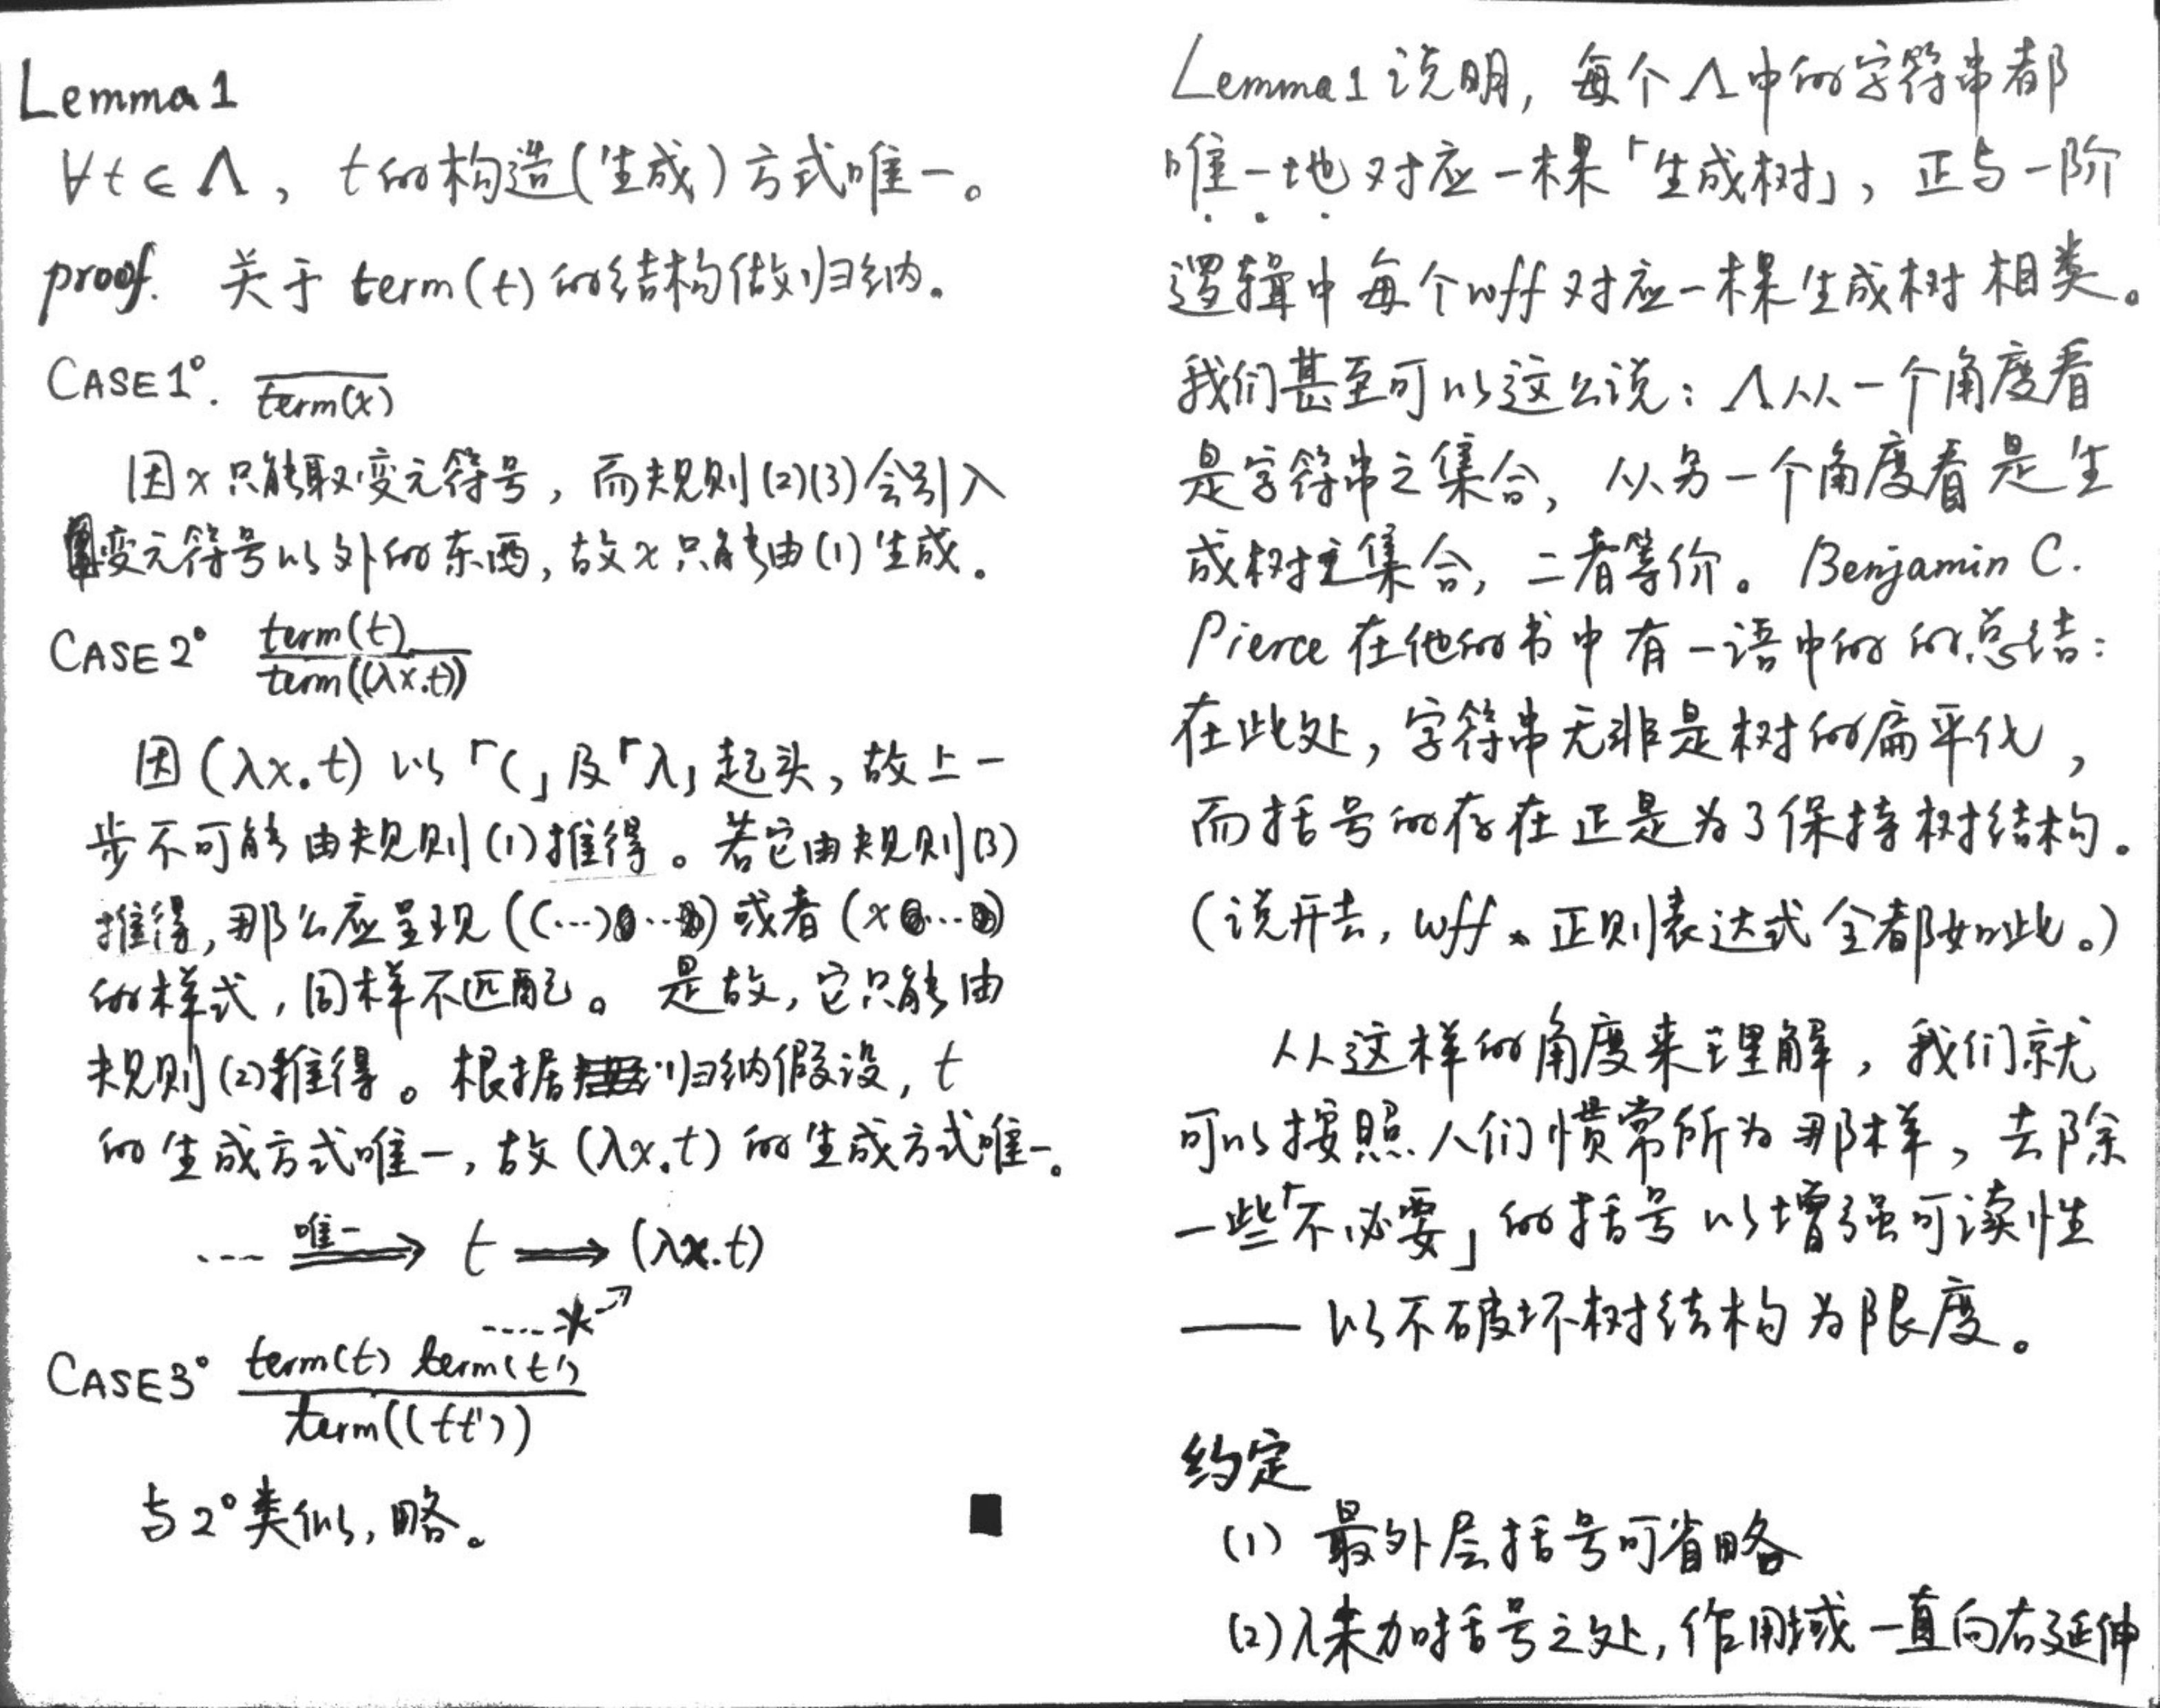 Lemma 1
∀t ∈ Λ, t的构造(生成)方式唯一。
proof. 关于 term(t) 的结构做归纳。
CASE 1°. ‾term(x)
因x只能取变元符号, 而规则(2)(3)会引入
变元符号以外的东西, 故x只能由(1)生成。
CASE 2° term(t)
term((λx.t))
因(λx.t) 以「(」及「λ」起头, 故上一
步不可能由规则(1)推得。若它由规则(3)
推得, 那么应呈现 ((…)…) 或者 (x…)
的样式, 同样不匹配。是故, 它只能由
规则(2)推得。根据归纳假设, t
的生成方式唯一, 故(λx.t) 的生成方式唯一。
唯一
.... ⟹ t ⟹ (λx.t)
CASE 3° term(t) term(t')
term((tt'))
与2°类似, 略。 ■
Lemma 1 说明, 每个Λ中的字符串都
唯一地对应一棵「生成树」, 正与一阶
逻辑中每个wff对应一棵生成树相类。
我们甚至可以这么说: Λ从一个角度看
是字符串之集合, 从另一个角度看是生
成树之集合, 二者等价。Benjamin C.
Pierce 在他的书中有一语中的的总结:
在此处, 字符串无非是树的扁平化,
而括号的存在正是为了保持树结构。
(说开去, wff、正则表达式全都如此。)
从这样的角度来理解, 我们就
可以按照人们惯常所为那样, 去除
一些「不必要」的括号以增强可读性
—— 以不破坏树结构为限度。
约定
(1) 最外层括号可省略
(2) λ未加括号之处, 作用域一直向右延伸